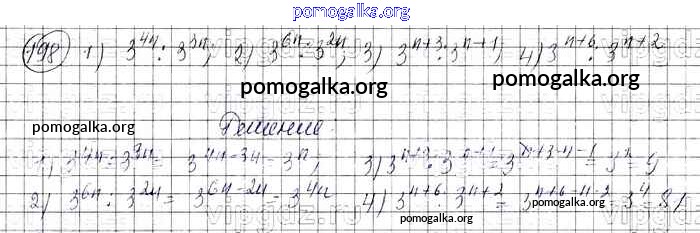 pomogalka.org
198 1) 3^{4n} : 3^{3n}; 2) 3^{6n} : 3^{2n}; 3) 3^{n+3} : 3^{n+1}; 4) 3^{n+6} : 3^{n+2}
pomogalka.org pomogalka.org
pomogalka.org Решение
1) 3^{4n} : 3^{3n} = 3^{4n-3n} = 3^n; 3) 3^{n+3} : 3^{n+1} = 3^{n+3-n-1} = 3^2 = 9
2) 3^{6n} : 3^{2n} = 3^{6n-2n} = 3^{4n} 4) 3^{n+6} : 3^{n+2} = 3^{n+6-n-2} = 3^4 = 81
pomogalka.org pomogalka.org